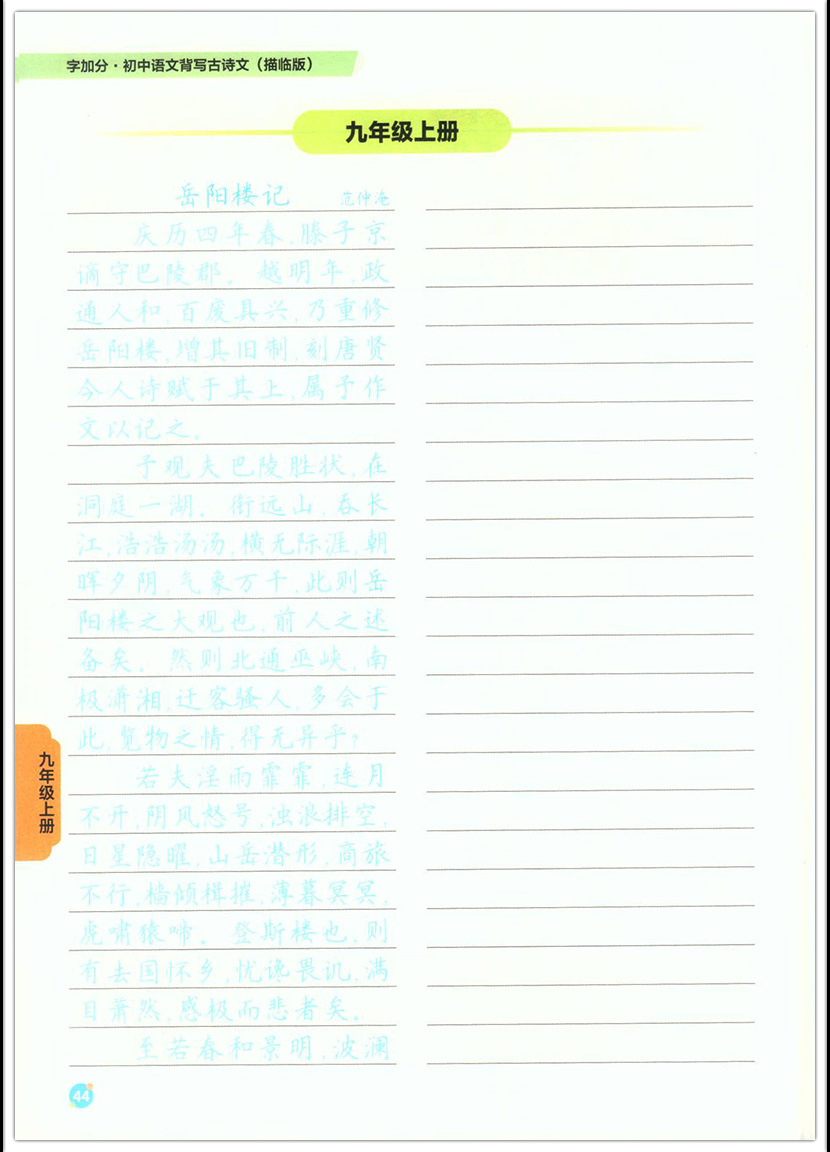 字加分·初中语文背写古诗文（描临版）
九年级上册
岳阳楼记 范仲淹
庆历四年春，滕子京
谪守巴陵郡。越明年，政
通人和，百废具兴，乃重修
岳阳楼，增其旧制，刻唐贤
今人诗赋于其上，属予作
文以记之。
予观夫巴陵胜状，在
洞庭一湖。衔远山，吞长
江，浩浩汤汤，横无际涯，朝
晖夕阴，气象万千，此则岳
阳楼之大观也，前人之述
备矣。然则北通巫峡，南
极潇湘，迁客骚人，多会于
此，览物之情，得无异乎？
若夫淫雨霏霏，连月
不开，阴风怒号，浊浪排空，
日星隐曜，山岳潜形，商旅
不行，樯倾楫摧，薄暮冥冥，
虎啸猿啼。登斯楼也，则
有去国怀乡，忧谗畏讥，满
目萧然，感极而悲者矣。
至若春和景明，波澜
九年级上册
44